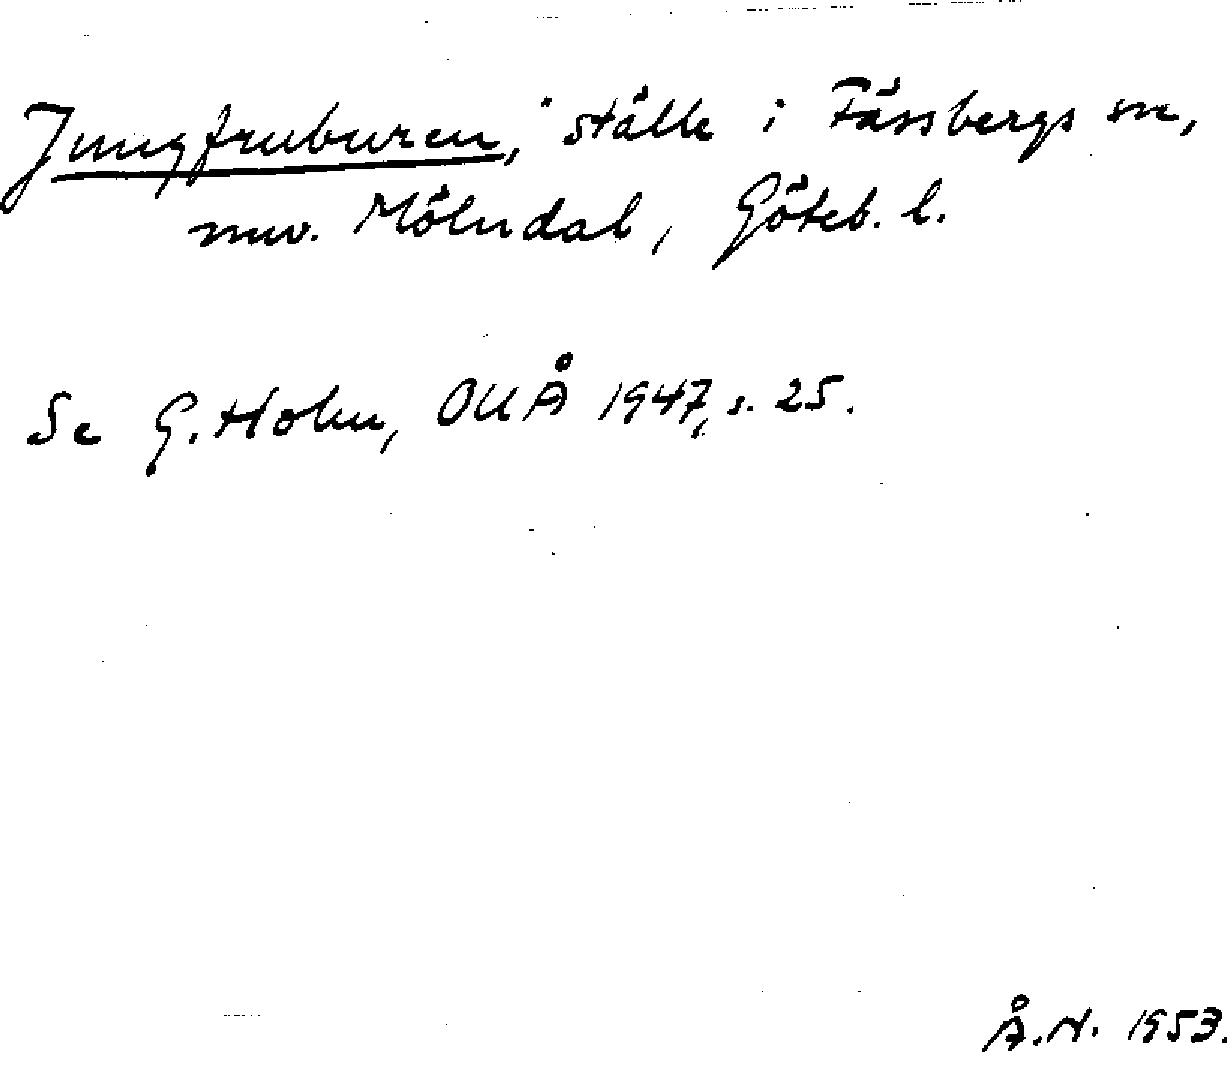 Jungfruburen, ställe i Fässbergs sn,
nuv. Mölndal, Göteb. l.
Se G. Holm, OUÅ 1947, s. 25.
Å.N. 1953.